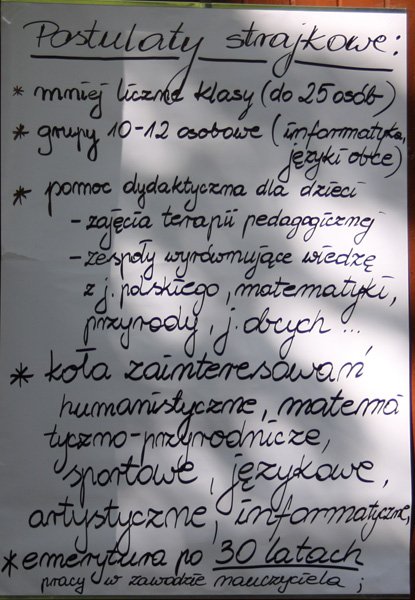 Postulaty strajkowe:
* mniej liczne klasy (do 25 osób)
* grupy 10-12 osobowe (informatyka,
języki obce)
* pomoc dydaktyczna dla dzieci
- zajęcia terapii pedagogicznej
- zespoły wyrównujące wiedzę
z j. polskiego, matematyki,
przyrody, j. obcych ...
* koła zainteresowań
humanistyczne, matema
tyczno-przyrodnicze,
sportowe, językowe,
artystyczne, informatyczne,
* emerytura po 30 latach
pracy w zawodzie nauczyciela ;